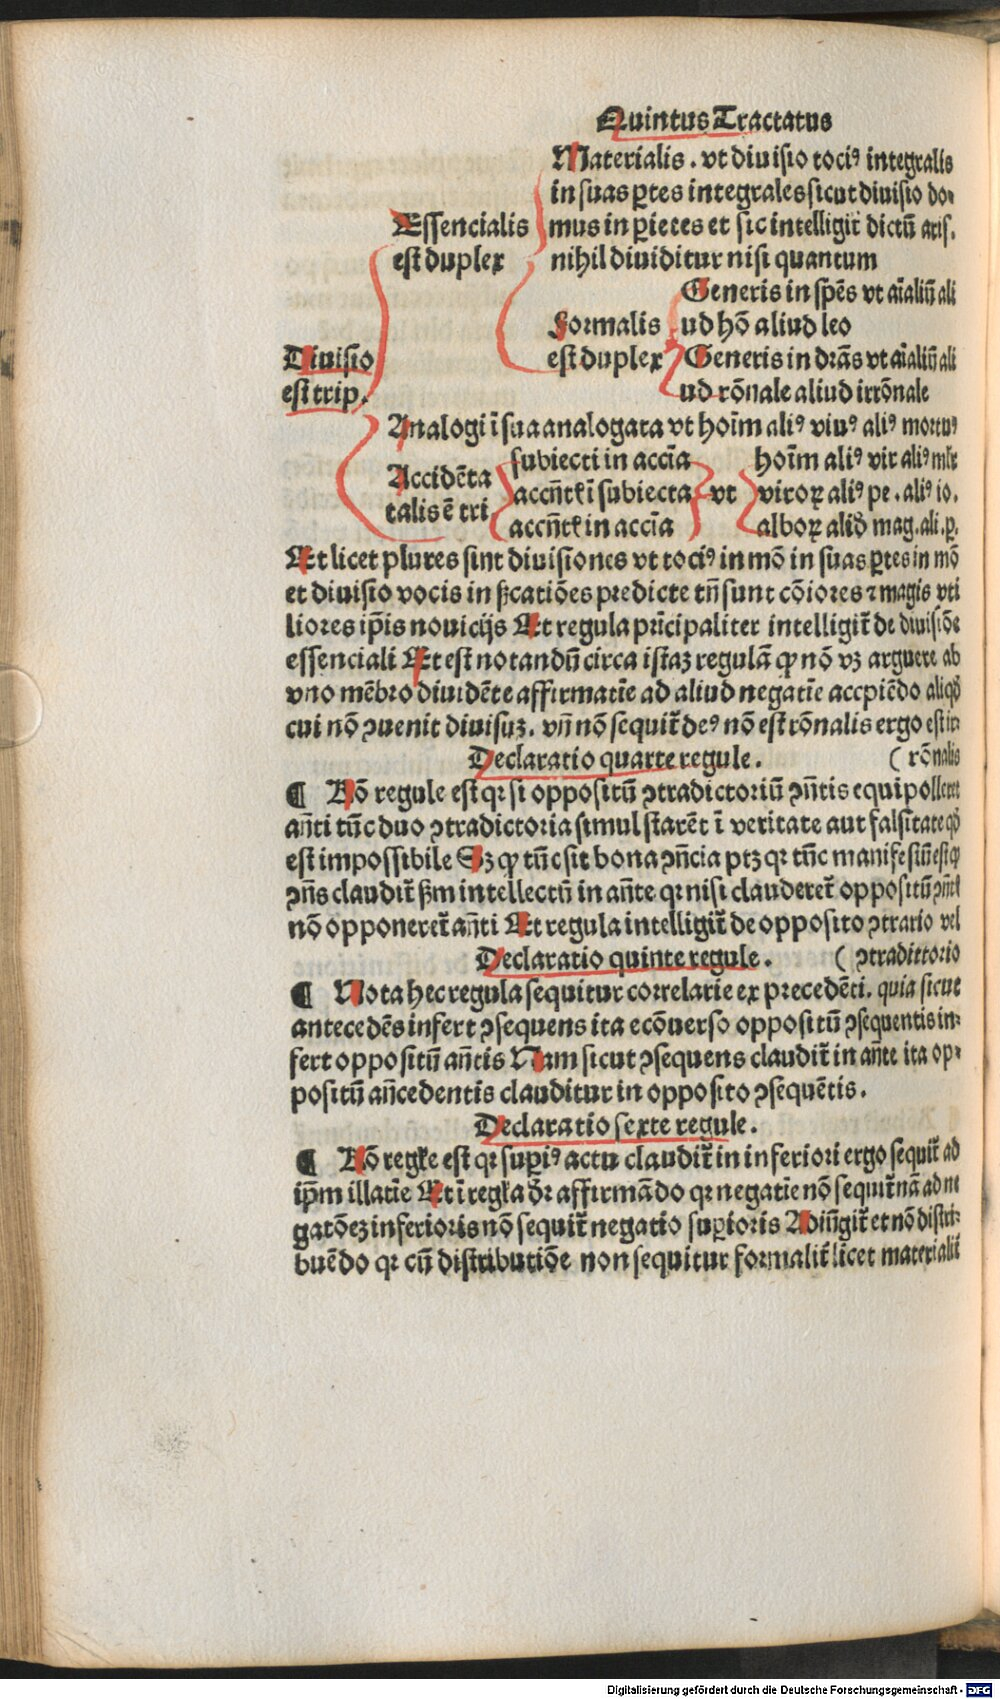 Quintus Tractatus
Materialis . vt diuisio tociꝰ integralis
in suas ꝑtes integrales sicut diuisio do-
mus in ꝑietes et sic intelligit̄ dictū aris.
nihil diuiditur nisi quantum
Essencialis
est duplex
Generis in spēs vt aīaliū ali
ud hō aliud leo
Formalis
est duplex
Generis in dr̄as vt aīaliū ali
ud rōnale aliud irrōnale
Diuisio
est trip.
Analogi ī sua analogata vt hoīm aliꝰ viuꝰ aliꝰ mortuꝰ
Accidēta
talis ē tri
subiecti in accīa
accn̄tꝭ ī subiecta
accn̄tꝭ in accīa
vt
hoīm aliꝰ vir aliꝰ ml̄r
viroꝝ aliꝰ pe . aliꝰ io.
alboꝝ aliđ mag. ali. p̱.
Et licet plures sint diuisiones vt tociꝰ in mō in suas ꝑtes in mō
et diuisio vocis in ßcatiōes predicte tn̄ sunt cōiores ⁊ magis vti
liores ip̄is nouicijs Et regula prīcipaliter intelligit̄ de diuisiōe
essenciali Et est notandū circa istaꝫ regulā ꝙ nō vꝫ arguere ab
vno mēbro diuidēte affirmatīe ad aliud negatīe accpiēdo aliqđ
cui nō ꝯuenit diuisuꝫ. vn̄ nō sequit̄ deꝰ nō est rōnalis ergo est ir
Declaratio quarte regule. ( rōnalis
¶ Rō regule est qꝛ si oppositū ꝯtradictoriū ꝯn̄tis equipolleret
an̄ti tūc duo ꝯtradictoria simul starēt ī veritate aut falsitate qđ
est impossibile Sꝫ ꝙ tūc sit bona ꝯn̄cia ptꝫ qꝛ tūc manifestū est ꝙ
ꝯn̄s claudit̄ ßm intellectū in an̄te qꝛ nisi clauderet̄ oppositū ꝯn̄tꝭ
nō opponeret̄ an̄ti Et regula intelligit̄ de opposito ꝯtrario vel
Declaratio quinte regule. ( ꝯtradittorio
¶ Nota hec regula sequitur correlarie ex precedēti. quia sicut
antecedēs infert ꝯsequens ita ecōuerso oppositū ꝯsequentis in-
fert oppositū an̄tis Nam sicut ꝯsequens claudit̄ in an̄te ita op-
positū an̄cedentis clauditur in opposito ꝯsequētis.
Declaratio sexte regule.
¶ Rō regl̄e est qꝛ suꝑiꝰ actu claudit̄ in inferiori ergo sequit̄ ad
ip̄m illatīe Et ī regl̄a dr̄ affirmādo qꝛ negatīe nō sequit̄ nā ad ne
gatōeꝫ inferioris nō sequit̄ negatio suꝑioris Adiūgit̄ et nō distri-
buēdo qꝛ cū distributiōe non sequitur formalit̄ licet materialit̄
Digitalisierung gefördert durch die Deutsche Forschungsgemeinschaft - DFG